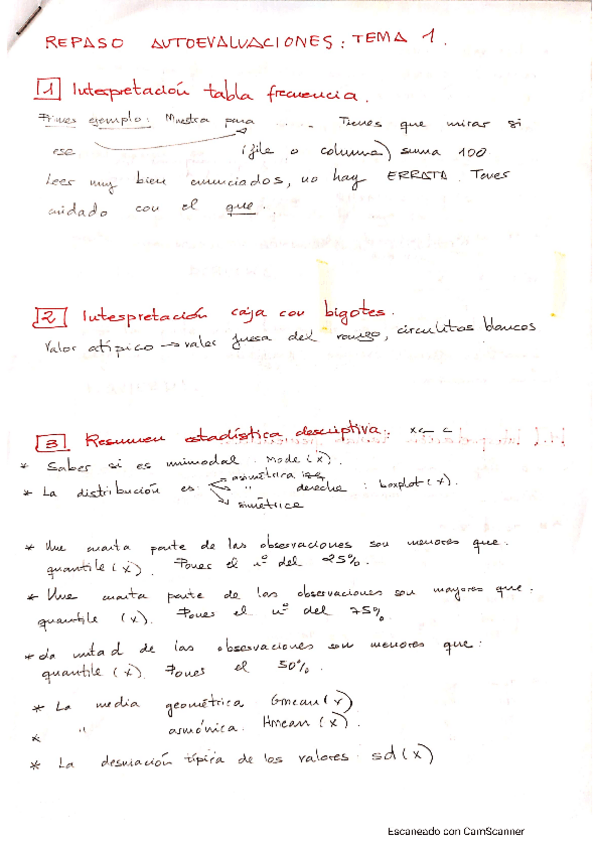 REPASO AUTOEVALUACIONES: TEMA 1.
1 Interpretación tabla frecuencia.
Primer ejemplo: Muestra para ..... Tienes que mirar si
ese (fila o columna) suma 100
Leer muy bien enunciados, no hay ERRATA. Tener
cuidado con el que.
2 Interpretación caja con bigotes.
Valor atípico → valor fuera del rango, circulitos blancos
3 Resumen estadística descriptiva. x <- c
* Saber si es unimodal. Mode(x).
* La distribución es asimétrica izq
" derecha : boxplot(x).
simétrica
* Una cuarta parte de las observaciones son menores que.
quantile(x). Pones el nº del 25%.
* Una cuarta parte de las observaciones son mayores que.
quantile (x). Pones el nº del 75%.
* La mitad de las observaciones son menores que:
quantile (x). Pones el 50%.
* La media geométrica Gmean(x)
* " armónica. Hmean(x).
* La desviación típica de los valores sd(x)
Escaneado con CamScanner